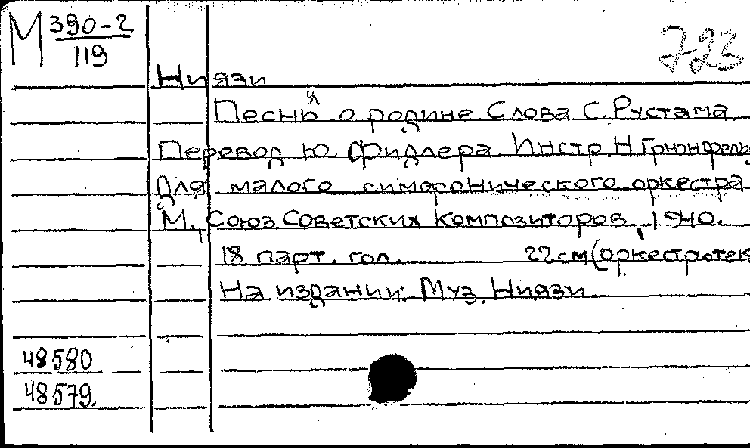 М 390-2
119
723
Ниязи
Песня о родине Слова С. Рустама
Перевод Ю Фидлера Инстр. Н Грюнфель
Для малого симфонического оркестра
М., Союз Советских Композиторов, 1940.
18 парт. гол. 22 см (оркестротек
На издании: Муз. Ниязи
48580
48579.